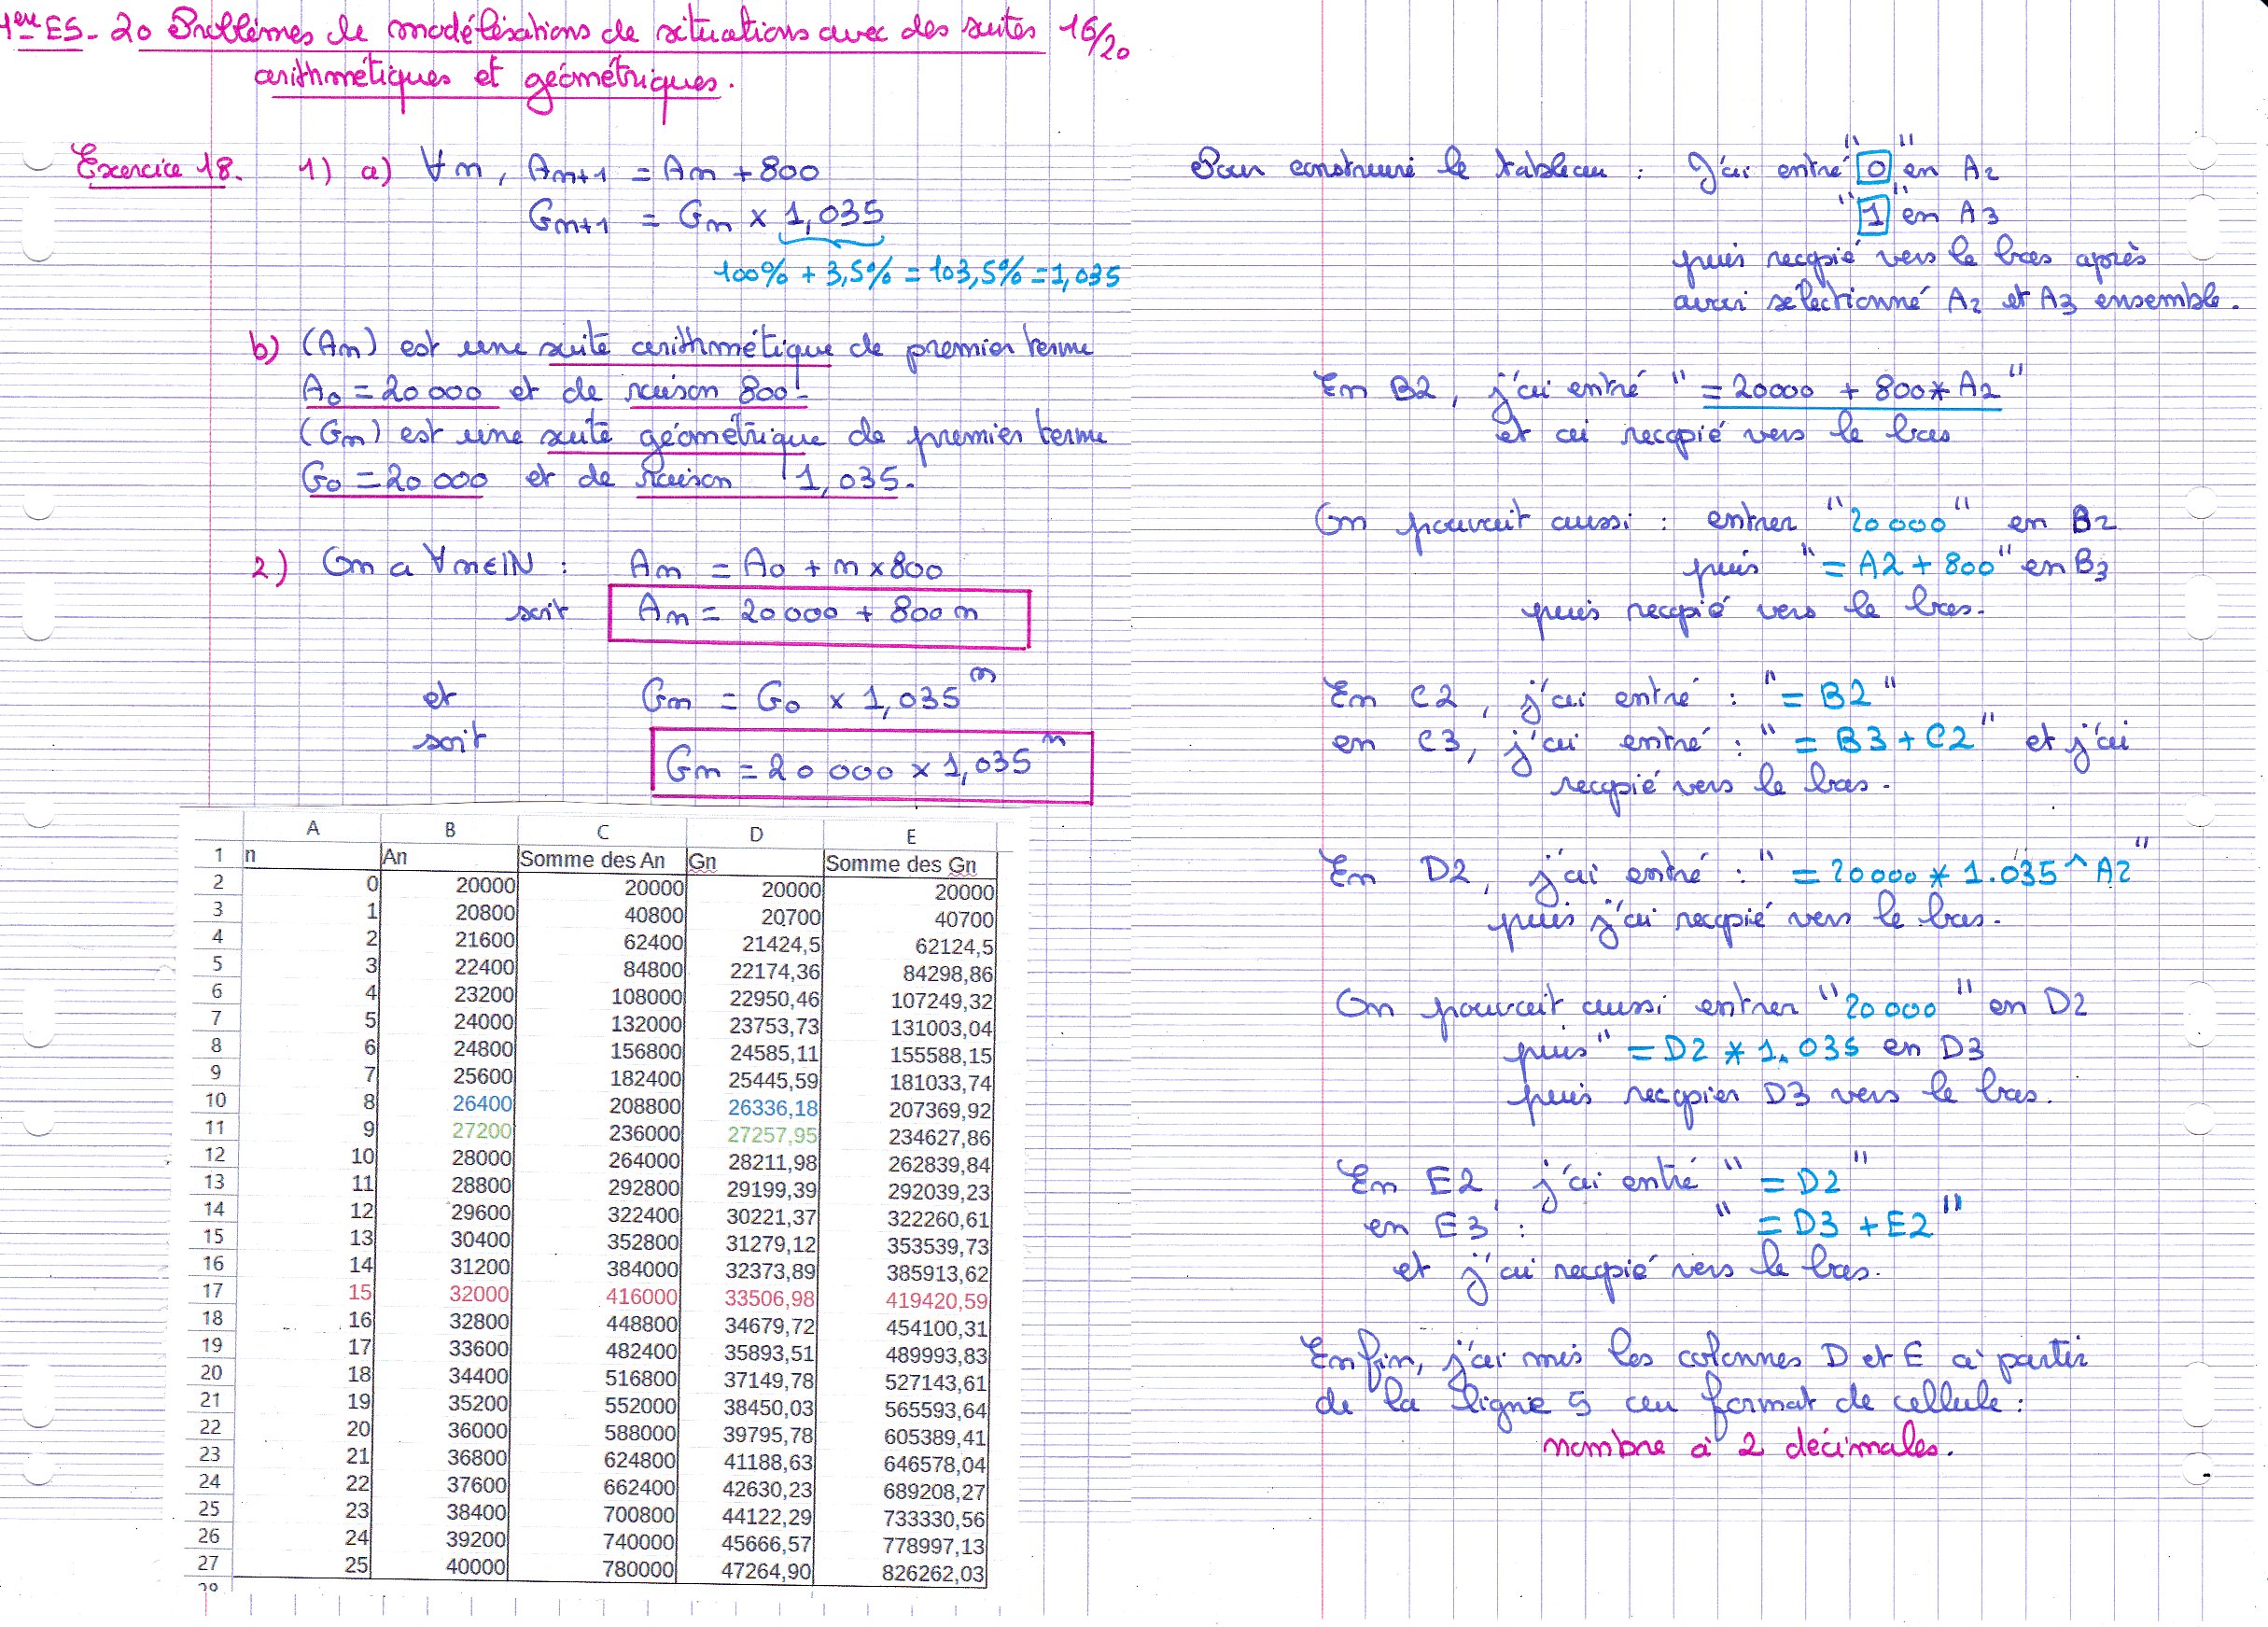 1ère ES - 20 Problèmes de modélisations de situations avec des suites 16/20
arithmétiques et géométriques.
Exercice 18. 1) a) ∀n, An+1 = An + 800
Gn+1 = Gn × 1,035
100% + 3,5% = 103,5% = 1,035
b) (An) est une suite arithmétique de premier terme
A0 = 20 000 et de raison 800.
(Gn) est une suite géométrique de premier terme
G0 = 20 000 et de raison 1,035.
2) On a ∀n∈ℕ : An = A0 + n × 800
soit An = 20 000 + 800 n
et Gn = G0 × 1,035^n
soit Gn = 20 000 × 1,035^n
A B C D E
1 n An Somme des An Gn Somme des Gn
2 0 20000 20000 20000 20000
3 1 20800 40800 20700 40700
4 2 21600 62400 21424,5 62124,5
5 3 22400 84800 22174,36 84298,86
6 4 23200 108000 22950,46 107249,32
7 5 24000 132000 23753,73 131003,04
8 6 24800 156800 24585,11 155588,15
9 7 25600 182400 25445,59 181033,74
10 8 26400 208800 26336,18 207369,92
11 9 27200 236000 27257,95 234627,86
12 10 28000 264000 28211,98 262839,84
13 11 28800 292800 29199,39 292039,23
14 12 29600 322400 30221,37 322260,61
15 13 30400 352800 31279,12 353539,73
16 14 31200 384000 32373,89 385913,62
17 15 32000 416000 33506,98 419420,59
18 16 32800 448800 34679,72 454100,31
19 17 33600 482400 35893,51 489993,83
20 18 34400 516800 37149,78 527143,61
21 19 35200 552000 38450,03 565593,64
22 20 36000 588000 39795,78 605389,41
23 21 36800 624800 41188,63 646578,04
24 22 37600 662400 42630,23 689208,27
25 23 38400 700800 44122,29 733330,56
26 24 39200 740000 45666,57 778997,13
27 25 40000 780000 47264,90 826262,03
Pour construire le tableau : J'ai entré "0" en A2
"1" en A3
puis recopié vers le bas après
avoir sélectionné A2 et A3 ensemble.
En B2, j'ai entré "=20000 + 800*A2"
et ai recopié vers le bas
On pouvait aussi : entrer "20 000" en B2
puis "=A2+800" en B3
puis recopié vers le bas.
En C2, j'ai entré : "=B2"
en C3, j'ai entré : "=B3+C2" et j'ai
recopié vers le bas.
En D2, j'ai entré : "=20000*1.035^A2"
puis j'ai recopié vers le bas.
On pouvait aussi entrer "20 000" en D2
puis "=D2*1.035 en D3
puis recopier D3 vers le bas.
En E2, j'ai entré "=D2"
en E3 : "=D3+E2"
et j'ai recopié vers le bas.
Enfin, j'ai mis les colonnes D et E à partir
de la ligne 5 au format de cellule :
nombre à 2 décimales.